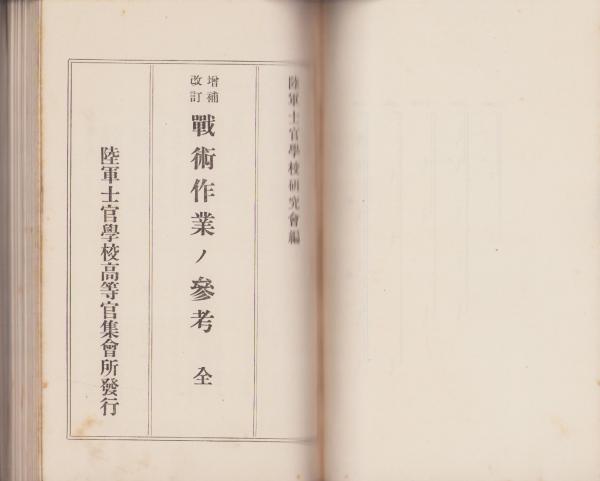 陸軍士官學校研究會編
增補
改訂
戰術作業ノ參考 全
陸軍士官學校高等官集會所發行